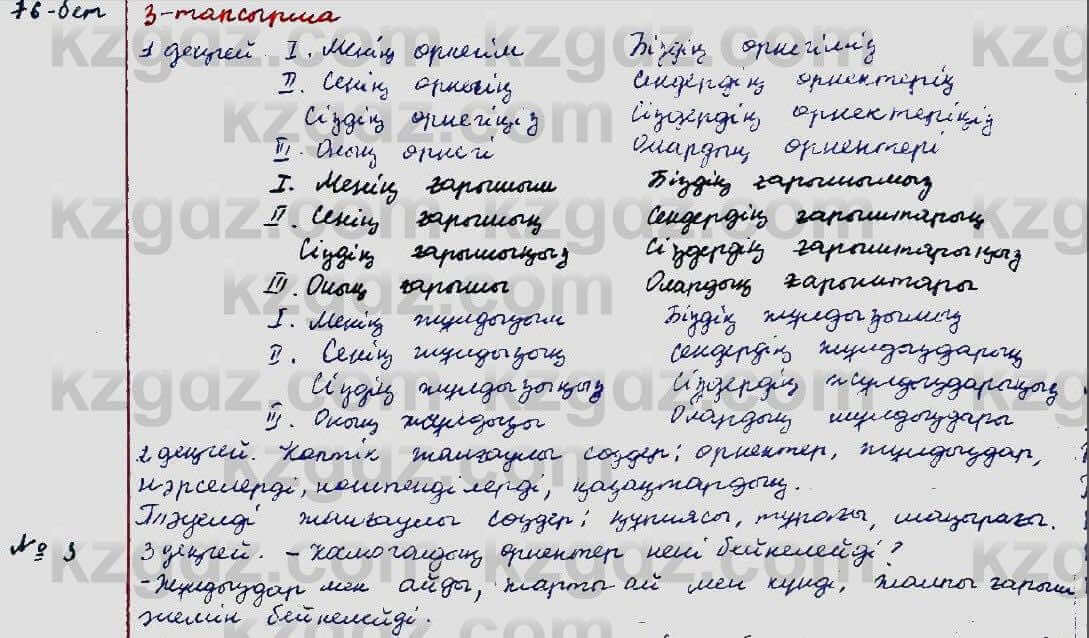 76-бет 3-тапсырма
1 деңгей I. Менің өрнегім Біздің өрнегіміз
II. Сенің өрнегің Сендердің өрнектерің
Сіздің өрнегіңіз Сіздердің өрнектеріңіз
III. Оның өрнегі Олардың өрнектері
I. Менің ғарышым Біздің ғарышымыз
II. Сенің ғарышың Сендердің ғарыштарың
Сіздің ғарышыңыз Сіздердің ғарыштарыңыз
III. Оның ғарышы Олардың ғарыштары
I. Менің жұлдызым Біздің жұлдызымыз
II. Сенің жұлдызың Сендердің жұлдыздарың
Сіздің жұлдызыңыз Сіздердің жұлдыздарыңыз
III. Оның жұлдызы Олардың жұлдыздары
2 деңгей. Көптік жалғаулы сөздер: өрнектер, жұлдыздар,
нәрселерді, көшпенділерді, қазақтардың.
Тәуелді жалғаулы сөздер: құпиясы, тұрағы, шаңырағы.
№ 3 3 деңгей. - Космогалдық өрнектер нені бейнелейді?
- Жұлдыздар мен айды, жарты ай мен күнді, жалпы ғарыш
әлемін бейнелейді.
kzgdz.com